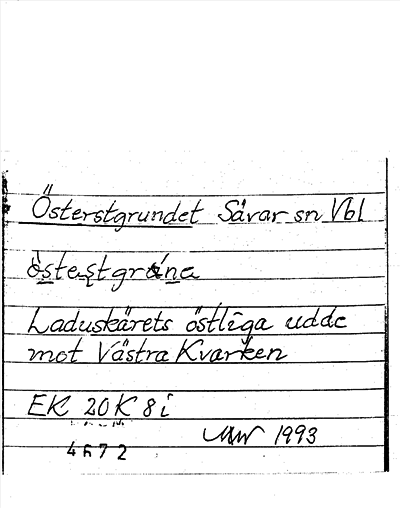 Österstgrundet Sävar sn Vbl
Laduskärets östliga udde
mot Västra Kvarken
EK 20K 8i
1993
4672